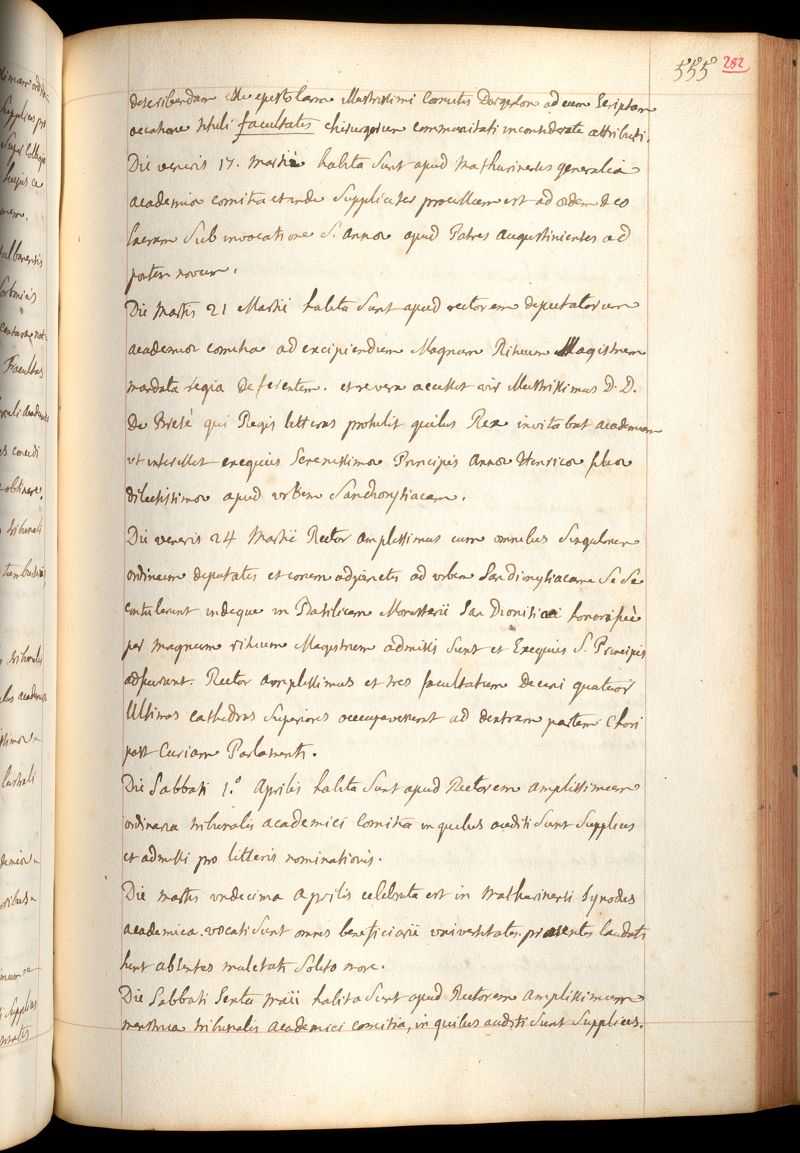 555 282
describendam esse epistolam illustrissimi Comitis Dargenson ad eum scriptam
occasione tituli facultatis chirurgorum communitati inconsiderate attributi.
Die veneris 17. Martii habita sunt apud Mathurinenses generalia
academiæ comitia et inde supplicatum processum est ad ædem deo
sacram sub invocatione S. Annæ apud Patres Augustinienses ad
portam novam.
Die Martis 21 Martii habita sunt apud rectorem deputatorum
academiæ comitia ad excipiendum Magnum Rituum Magistrum
mandata regia deferentem. et re vera accessit vir illustrissimus D. D.
De Brezé qui Regis litteras protulit quibus Rex invitabat academiam
ut interesset exequiis Serenissimæ Principis Annæ Henricæ filiæ
dilectissimæ apud urbem Sandionysiacam.
Die veneris 24 Martii Rector amplissimus cum omnibus singulorum
ordinum deputatis et eorum adjunctis ad urbem Sandionysiacam se se
contulerunt indeque in Basilicam Monasterii San Dionisiaci honorifice
per magnum rituum Magistrum admissi sunt et Exequiis S. Principis
adfuerunt. Rector amplissimus et tres facultatum Decani quatuor
ultimas cathedras superiores occupaverunt ad dextram partem Chori
post Curiam Parlamenti.
Die Sabbati 1.° Aprilis habita sunt apud Rectorem amplissimum
ordinaria tribunalis academici Comitia in quibus auditi sunt supplices
et admissi pro litteris nominationis.
Die martis undecima Aprilis celebrata est in Mathurinensi synodus
academica. vocati sunt omnes beneficiarii universitatis. præsentes laudati
fuere absentes mulctati solito more.
Die Sabbati sexta Maii habita sunt apud Rectorem amplissimum
menstrua tribunalis academici comitia, in quibus auditi sunt supplices.